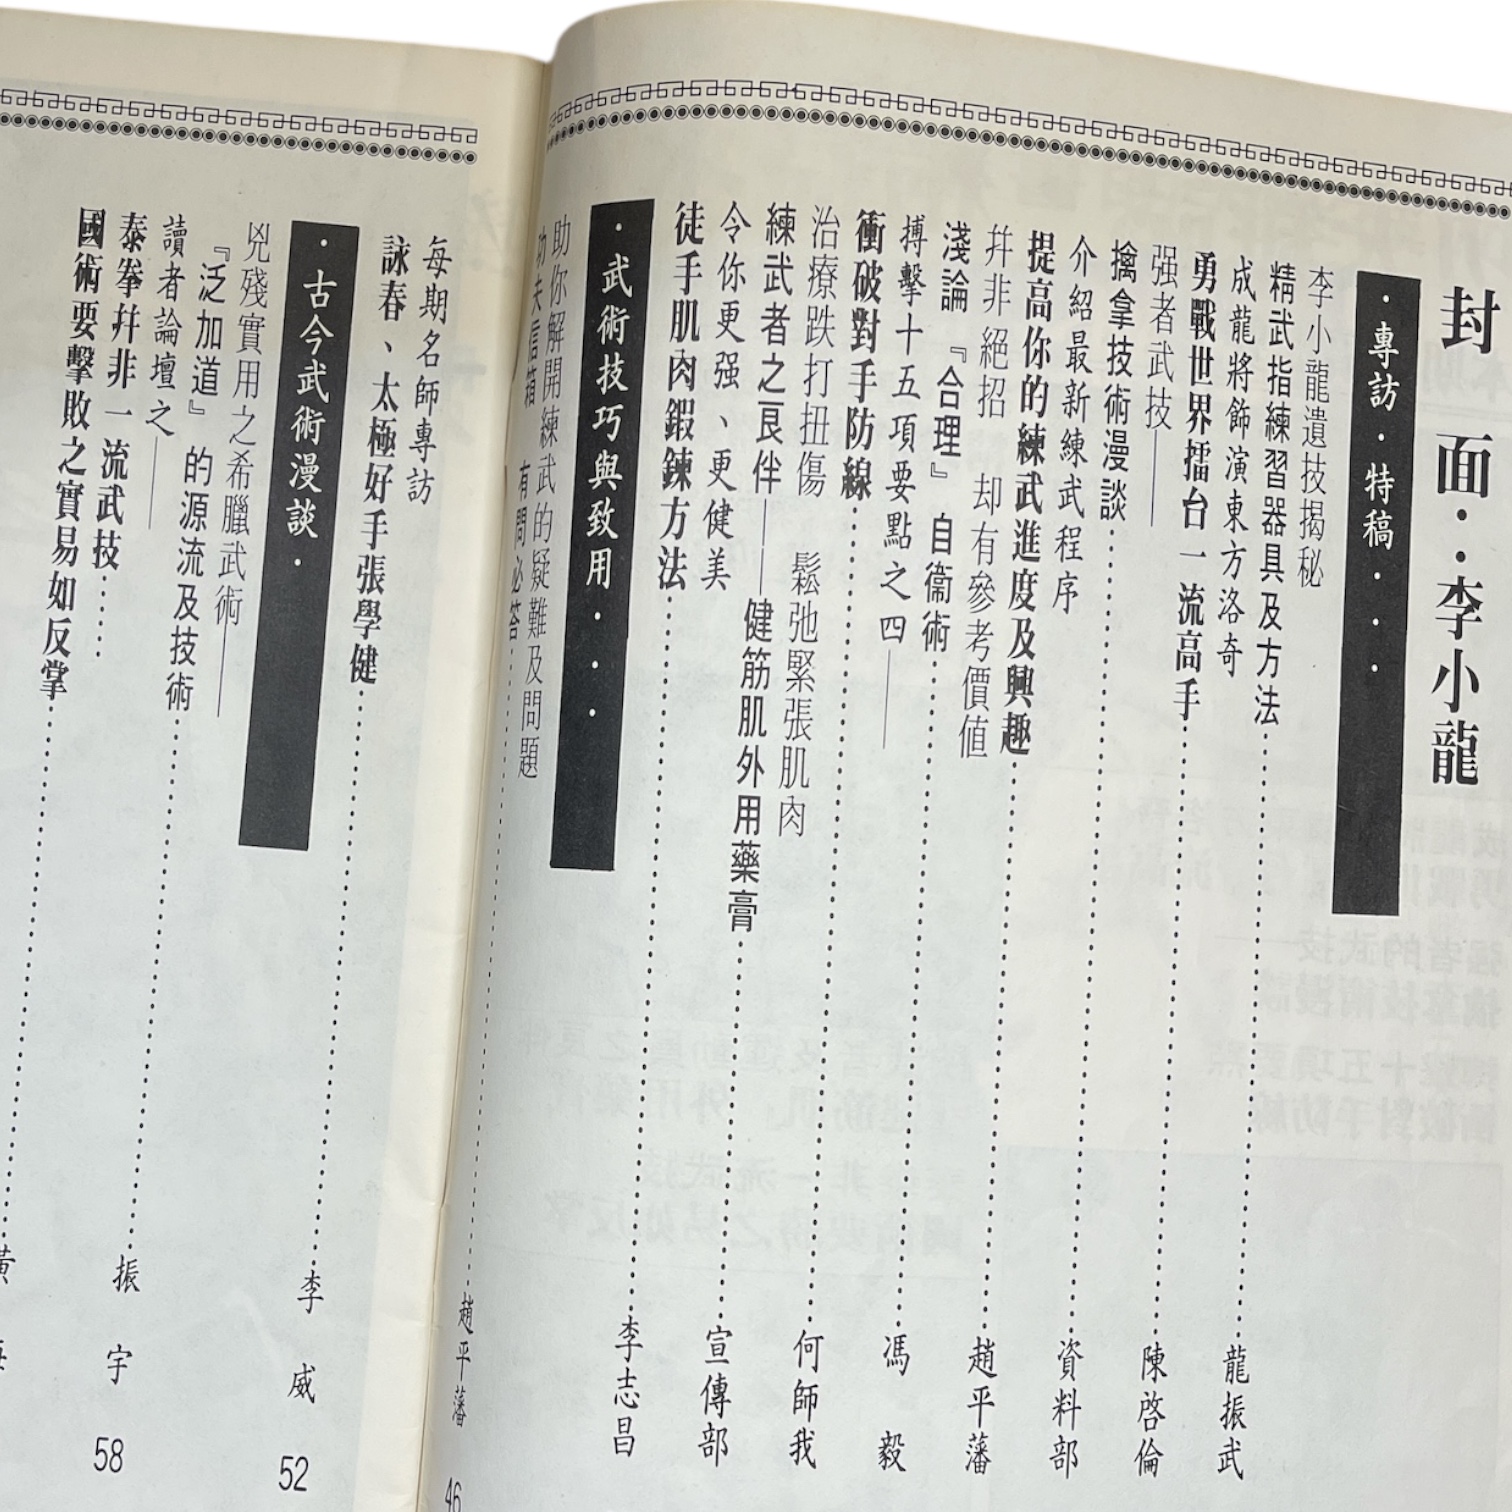 封面：李小龍
·專訪·特稿····
李小龍遺技揭秘
精武指練習器具及方法……龍振武
成龍將飾演東方洛奇
勇戰世界擂台一流高手……陳啓倫
强者武技——
擒拿技術漫談……資料部
介紹最新練武程序
提高你的練武進度及興趣……趙平藩
幷非絕招 却有參考價值
淺論『合理』自衞術……馮毅
搏擊十五項要點之四——
衝破對手防線……何師我
治療跌打扭傷 鬆弛緊張肌肉
練武者之良伴——健筋肌外用藥膏……宣傳部
令你更强、更健美
徒手肌肉鍛鍊方法……李志昌
·武術技巧與致用····
助你解開練武的疑難及問題
功夫信箱 有問必答……趙平藩 46
每期名師專訪
詠春、太極好手張學健……李威 52
·古今武術漫談·
兇殘實用之希臘武術——
『泛加道』的源流及技術……振宇 58
讀者論壇之——
泰拳幷非一流武技……
國術要擊敗之實易如反掌……黃